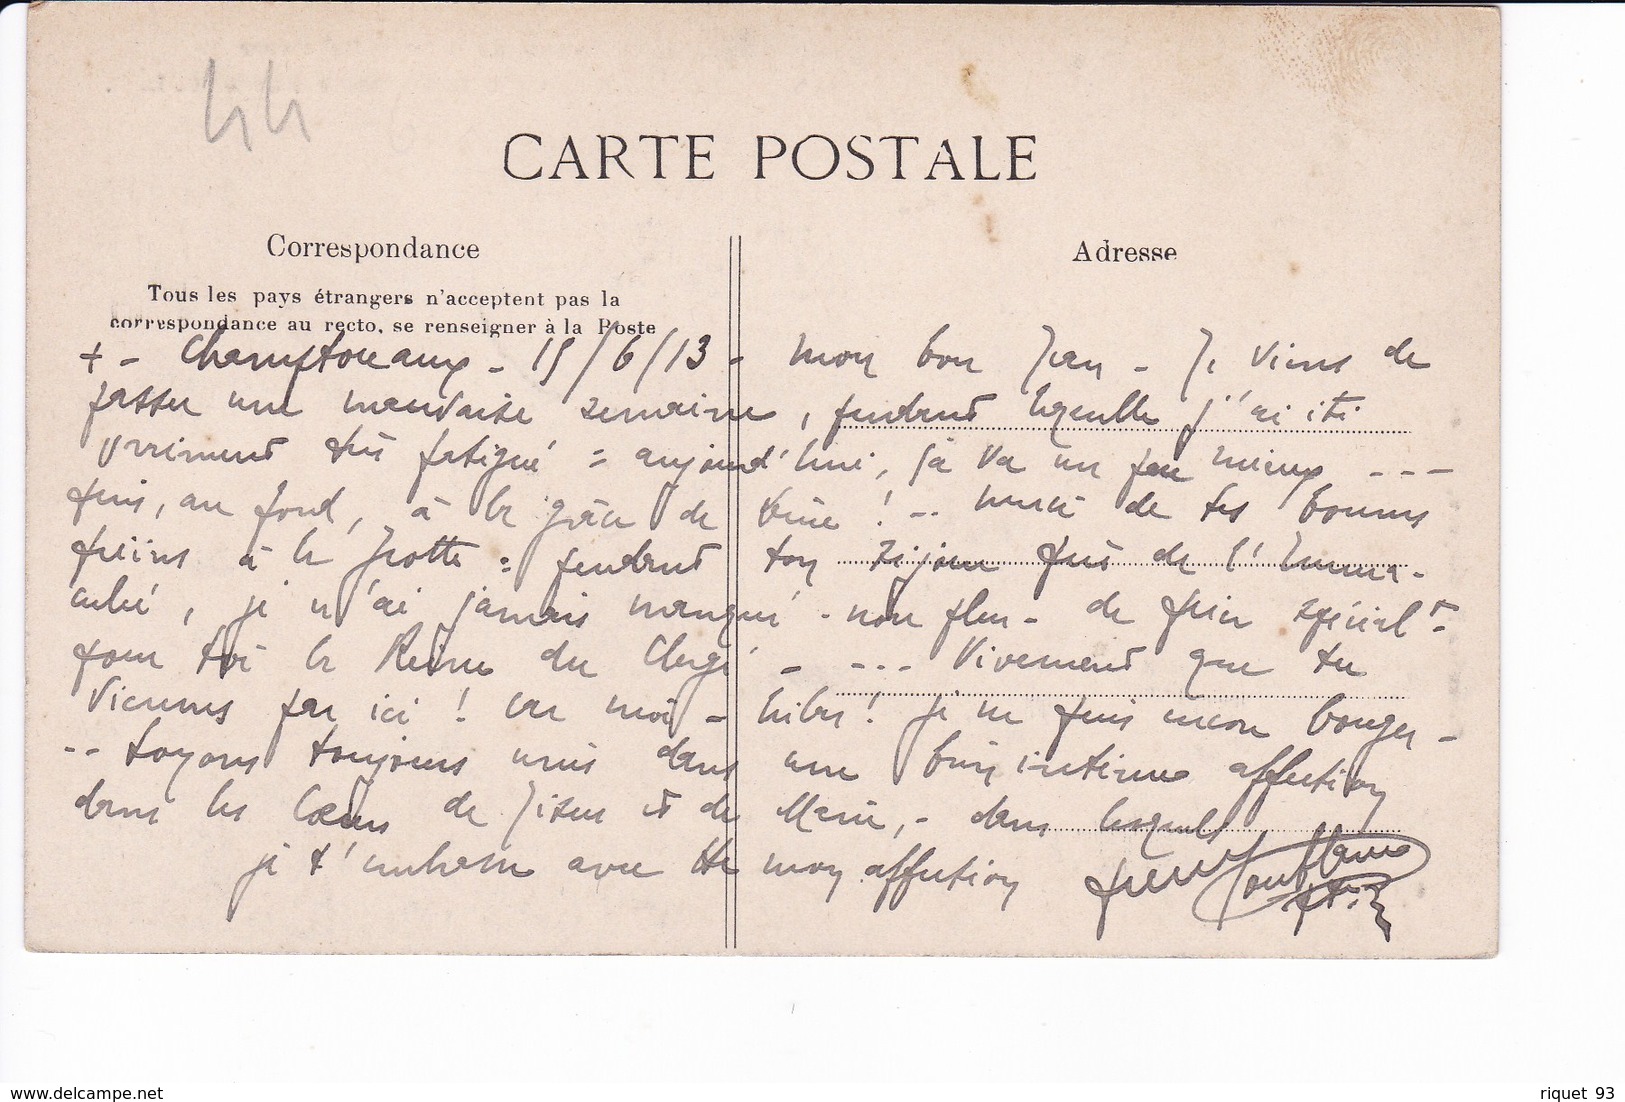 44
CARTE POSTALE
Correspondance
Adresse
Tous les pays étrangers n'acceptent pas la
correspondance au recto, se renseigner à la Poste
+ - Champtoceaux - 15/6/13 - mon bon Jean - Je viens de
passer une mauvaise semaine, pendant laquelle j'ai été
vraiment très fatigué = aujourd'hui, ça va un peu mieux ---
puis, au fond, à la grâce de Dieu ! -- merci de tes bonnes
prières à la Grotte = pendant ton séjour près de l'Imma-
culée, je n'ai jamais manqué - non plus - de prier spécialt
pour toi la Reine du Clergé - --- Vivement que tu
viennes par ici ! car moi - hélas ! je ne puis encore bouger -
-- soyons toujours unis dans une bien intime affection
dans les Cœurs de Jésus et de Marie, - dans lesquels
je t'embrasse avec tte mon affection
riquet 93
www.delcampe.net